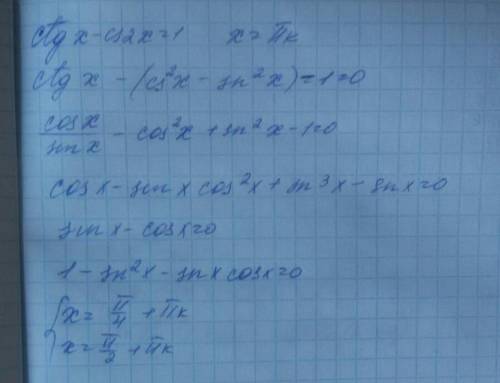 ctg x - cos2x = 1 x = πk
ctg x - (cos²x - sin²x) - 1 = 0
cosx/sinx - cos²x + sin²x - 1 = 0
cosx - sinx cos²x + sin³x - sinx = 0
sinx - cosx = 0
1 - sin²x - sinx cosx = 0
x = π/4 + πk
x = π/2 + πk